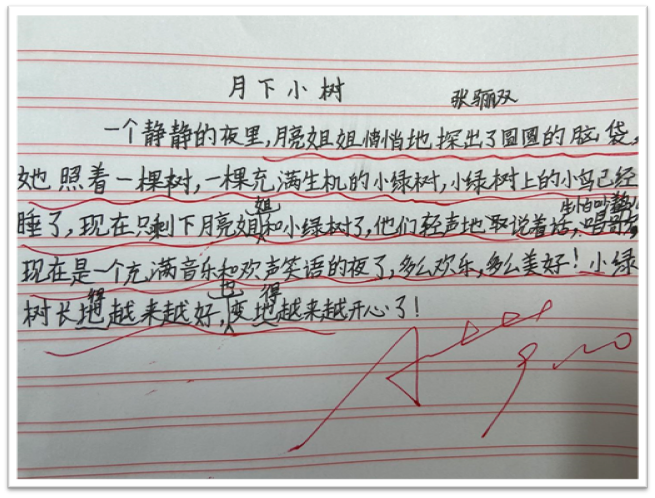 月下小树
张骊双
一个静静的夜里,月亮姐姐悄悄地探出了圆圆的脑袋,
她照着一棵树,一棵充满生机的小绿树,小绿树上的小鸟已经
姐 生怕吵
睡了,现在只剩下月亮姐和小绿树了,他们轻声地说着话,唱
现在是一个充满音乐和欢声笑语的夜了,多么欢乐,多么美好!小绿
得 也 得
树长地越来越好,变地越来越开心了!